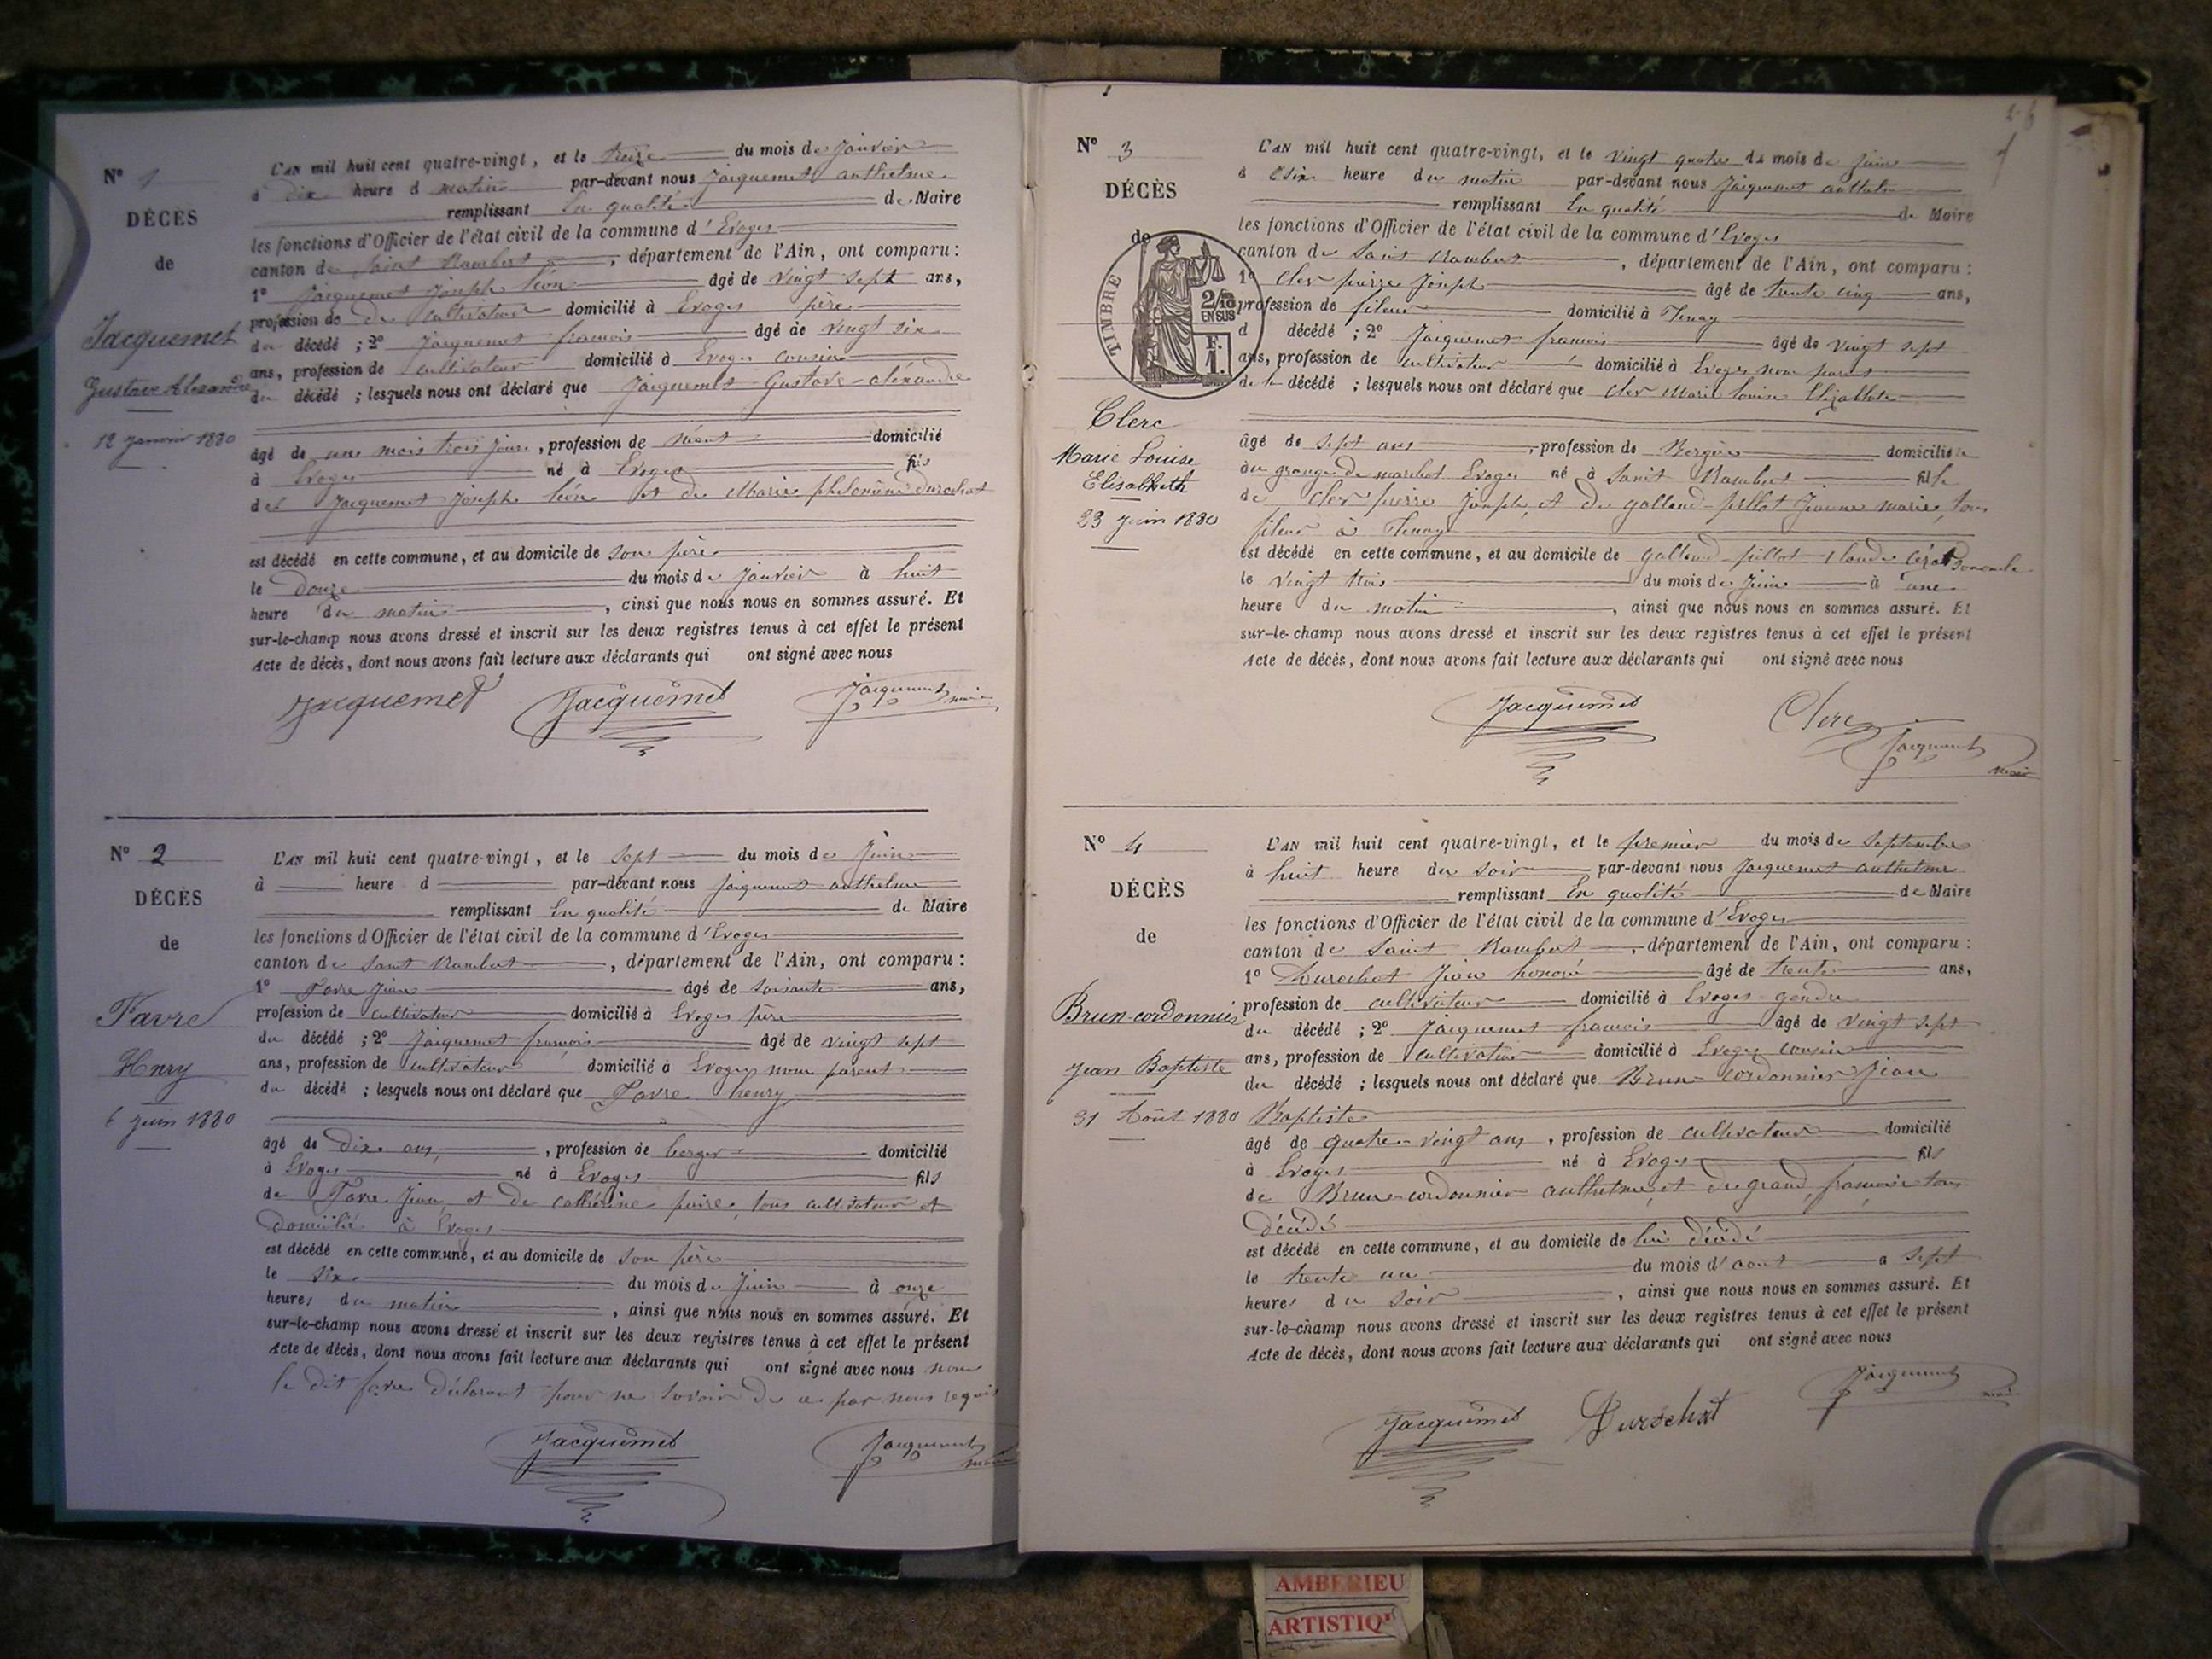 N° 1
DÉCÈS
de
Jacquemet
Gustave Alexandre
12 janvier 1880
L'AN mil huit cent quatre-vingt, et le treize du mois de Janvier
à dix heure d matin par-devant nous Jacquemet anthelme
remplissant En qualité de Maire
les fonctions d'Officier de l'état civil de la commune d'Evoges
canton de Saint Rambert, département de l'Ain, ont comparu :
1° Jacquemet Joseph léon âgé de vingt sept ans,
profession de de cultivateur domicilié à Evoges père
du décédé ; 2° Jacquemet francois âgé de vingt six
ans, profession de cultivateur domicilié à Evoges cousin
du décédé ; lesquels nous ont déclaré que Jacquemet Gustave aléxandre
âgé de une mois trois jours, profession de néant domicilié
à Evoges né à Evoges fils
de Jacquemet Joseph léon et de Marie philomène Durochat
est décédé en cette commune, et au domicile de son père
le douze du mois de Janvier à huit
heure du matin, ainsi que nous nous en sommes assuré. Et
sur-le-champ nous avons dressé et inscrit sur les deux registres tenus à cet effet le présent
Acte de décès, dont nous avons fait lecture aux déclarants qui ont signé avec nous
Jacquemet Jacquemet Jacquemet maire
N° 2
DÉCÈS
de
Favre
Henry
6 juin 1880
L'AN mil huit cent quatre-vingt, et le sept du mois de Juin
à heure d par-devant nous Jacquemet anthelme
remplissant En qualité de Maire
les fonctions d'Officier de l'état civil de la commune d'Evoges
canton de Saint Rambert, département de l'Ain, ont comparu :
1° Favre Jean âgé de soixante ans,
profession de cultivateur domicilié à Evoges père
du décédé ; 2° Jacquemet françois âgé de vingt sept
ans, profession de cultivateur domicilié à Evoges non parent
du décédé ; lesquels nous ont déclaré que Favre henry
âgé de dix ans, profession de berger domicilié
à Evoges né à Evoges fils
de Favre Jean et de cathérine poire, tous cultivateur et
domicilié à Evoges
est décédé en cette commune, et au domicile de son père
le six du mois de Juin à onze
heures du matin, ainsi que nous nous en sommes assuré. Et
sur-le-champ nous avons dressé et inscrit sur les deux registres tenus à cet effet le présent
Acte de décès, dont nous avons fait lecture aux déclarants qui ont signé avec nous non
le dit favre déclarant pour ne savoir de ce par nous requis
Jacquemet Jacquemet maire
N° 3
DÉCÈS
de
TIMBRE
2/10
EN SUS
F.
1.
Clerc
Marie Louise
Elisabeth
23 juin 1880
L'AN mil huit cent quatre-vingt, et le vingt quatre du mois de Juin
à six heure du matin par-devant nous Jacquemet anthelme
remplissant En qualité de Maire
les fonctions d'Officier de l'état civil de la commune d'Evoges
canton de Saint Rambert, département de l'Ain, ont comparu :
1° Cler pierre Joseph âgé de trente cinq ans,
profession de fileur domicilié à Tenay
d décédé ; 2° Jacquemet francois âgé de vingt sept
ans, profession de cultivateur domicilié à Evoges non parent
de la décédé ; lesquels nous ont déclaré que Cler Marie louise Elizabete
âgé de sept ans, profession de Bergère domiciliée
au grange de marchat Evoges né à Saint Rambert fille
de Cler pierre Joseph, et de golland-pillot Jeanne marie, tous
fileur à Thenay
est décédé en cette commune, et au domicile de Golland pillot Claude
le vingt trois du mois de Juin à une
heure du matin, ainsi que nous nous en sommes assuré. Et
sur-le-champ nous avons dressé et inscrit sur les deux registres tenus à cet effet le présent
Acte de décès, dont nous avons fait lecture aux déclarants qui ont signé avec nous
Jacquemet Clerc
Jacquemet maire
N° 4
DÉCÈS
de
Brun-cordonnier
Jean Baptiste
31 Août 1880
L'AN mil huit cent quatre-vingt, et le premier du mois de Septembre
à huit heure du soir par-devant nous Jacquemet anthelme
remplissant En qualité de Maire
les fonctions d'Officier de l'état civil de la commune d'Evoges
canton de Saint Rambert, département de l'Ain, ont comparu :
1° Durochat Jean honoré âgé de trente ans,
profession de cultivateur domicilié à Evoges gendre
du décédé ; 2° Jacquemet francois âgé de vingt sept
ans, profession de cultivateur domicilié à Evoges cousin
du décédé ; lesquels nous ont déclaré que Brun-cordonnier Jean
Baptiste
âgé de quatre-vingt ans, profession de cultivateur domicilié
à Evoges né à Evoges fils
de Brun-cordonnier anthelme, et de grand, francoise tous
décédé
est décédé en cette commune, et au domicile de lui décédé
le trente un du mois d'aout a sept
heures du soir, ainsi que nous nous en sommes assuré. Et
sur-le-champ nous avons dressé et inscrit sur les deux registres tenus à cet effet le présent
Acte de décès, dont nous avons fait lecture aux déclarants qui ont signé avec nous
Jacquemet Durochat Jacquemet maire
AMBERIEU
ARTISTIQ